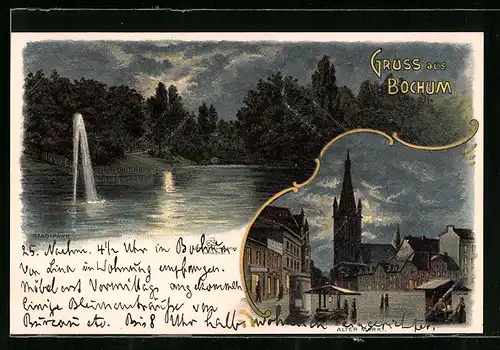 GRUSS aus
BOCHUM
STADTPARK
ALTER MARKT.
25. Nachm. 4½ Uhr in Bochum
Von Lina in Wohnung empfangen.
Möbel erst Vormittags angekommen
Einige Blumensträuße von
Bureau etc. Bis 8 Uhr halbwegs wohnlich eingerichtet.